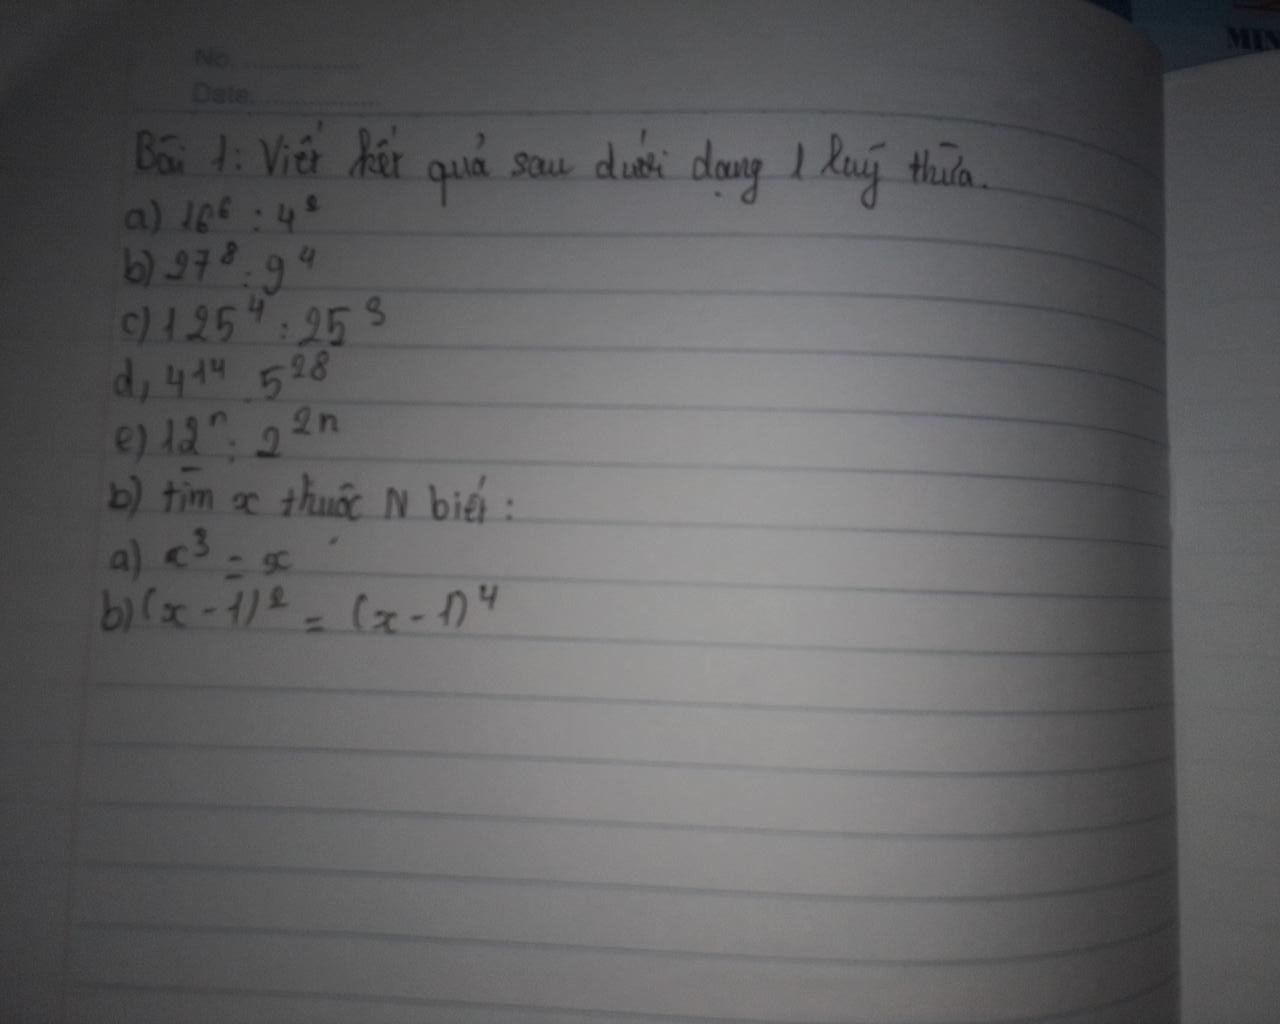 No.................
Date.................
MIN
Bài 1: Viết kết quả sau dưới dạng 1 luỹ thừa.
a) 16⁶ : 4²
b) 27⁸ : 9⁴
c) 125⁴ : 25³
d, 4¹⁴ . 5²⁸
e) 12ⁿ : 2²ⁿ
b) tìm x thuộc N biết :
a) x³ = x
b) (x - 1)² = (x - 1)⁴